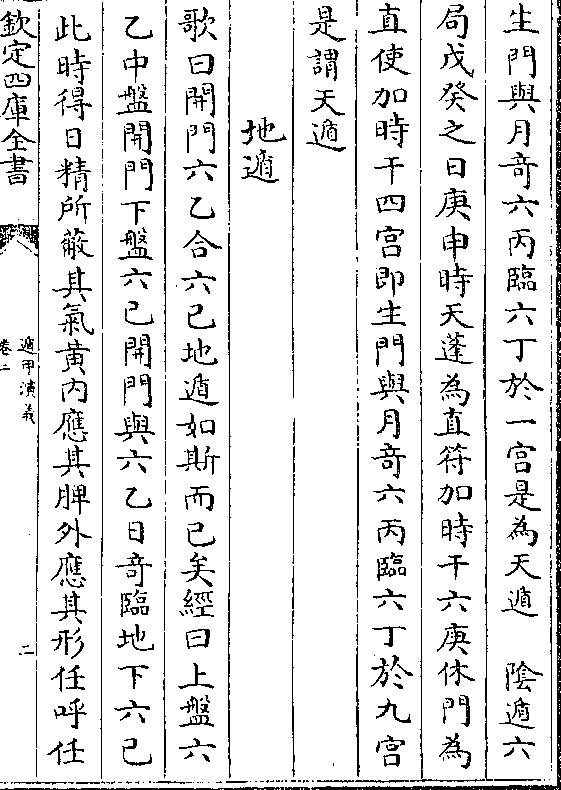 生門與月竒六丙臨六丁於一宫是為天遁　陰遁六
局戊癸之日庚申時天蓬為直符加時干六庚休門為
直使加時干四宫即生門與月竒六丙臨六丁於九宫
是謂天遁
地遁
歌曰開門六乙合六己地遁如斯而已矣經曰上盤六
乙中盤開門下盤六己開門與六乙日竒臨地下六己
此時得日精所蔽其氣黄内應其脾外應其形任呼任
欽定四庫全書
遁甲演義
卷二
二